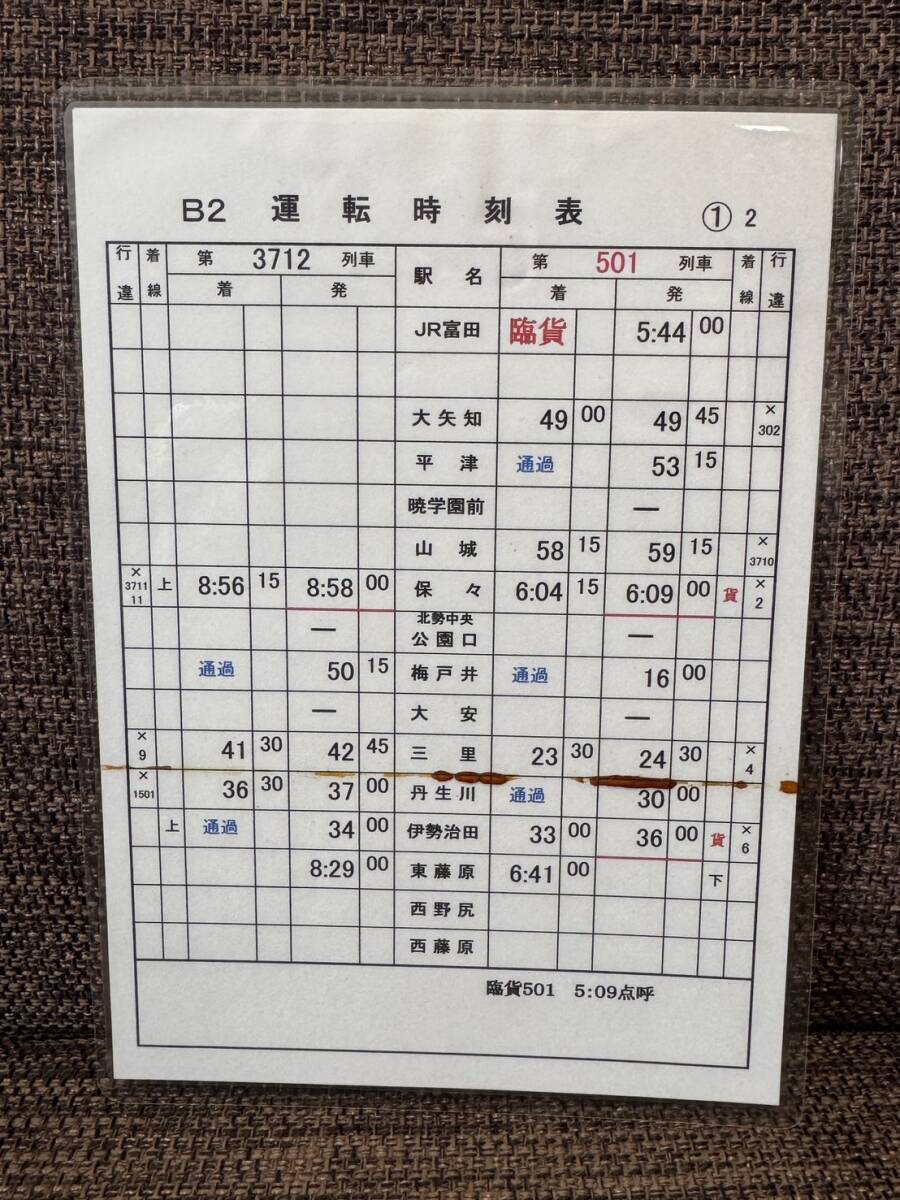 B2 運転時刻表 ① 2
行違 着線 第 3712 列車 駅名 第 501 列車 着線 行違
着 発 着 発
JR富田 臨貨 5:44 00
大矢知 49 00 49 45 × 302
平津 通過 53 15
暁学園前 ー
山城 58 15 59 15 × 3710
× 3711 11 上 8:56 15 8:58 00 保々 6:04 15 6:09 00 貨 × 2
ー 北勢中央公園口 ー
通過 50 15 梅戸井 通過 16 00
ー 大安 ー
× 9 41 30 42 45 三里 23 30 24 30 × 4
× 1501 36 30 37 00 丹生川 通過 30 00
上 通過 34 00 伊勢治田 33 00 36 00 貨 × 6
8:29 00 東藤原 6:41 00 下
西野尻
西藤原
臨貨501 5:09点呼